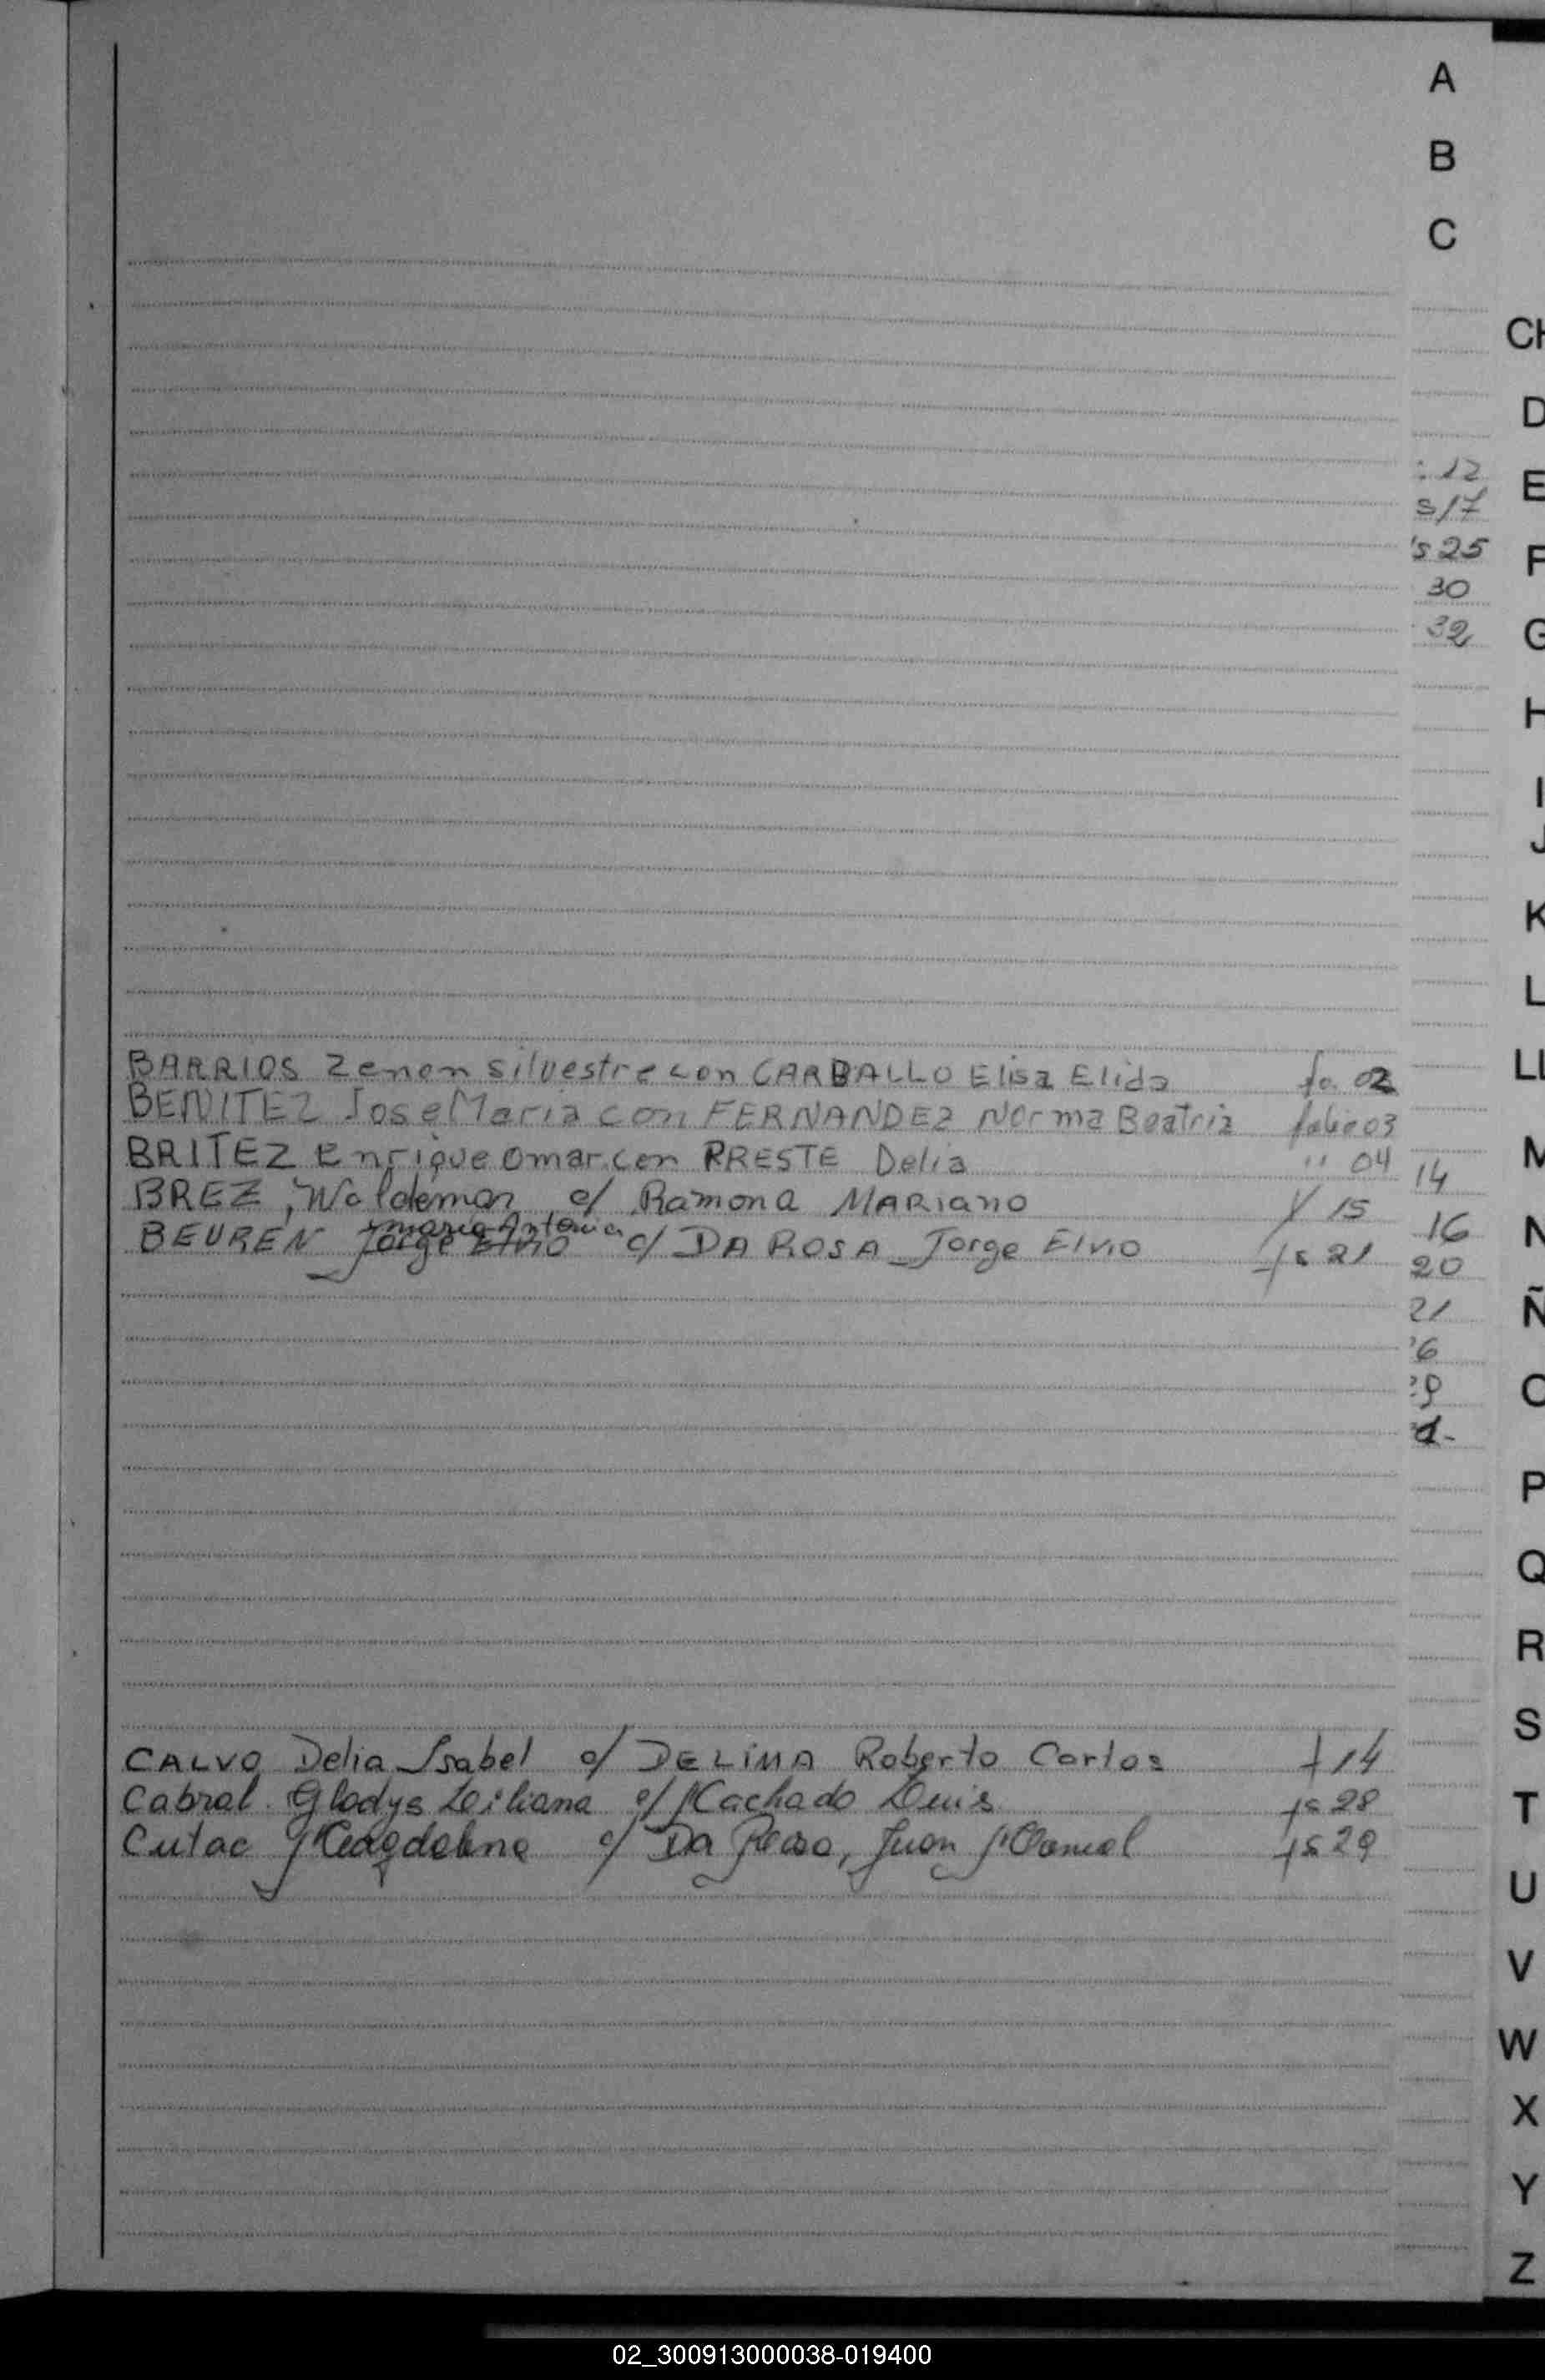 A
B
C
CH
D
E
F
G
H
I
J
K
L
LL
M
N
Ñ
O
P
Q
R
S
T
U
V
W
X
Y
Z
12
s 17
s 25
30
32
BARRIOS Zenon Silvestre con CARBALLO Elisa Elida fo. 02
BENITEZ Jose Maria con FERNANDEZ Norma Beatriz folio 03
BRITEZ Enrique Omar con PRESTE Delia " 04
BREZ, Waldemar c/ Ramona MARiano 15
BEUREN Jorge Elvio Maria Antonia c/ DA ROSA Jorge Elvio fs 21
14
16
20
21
6
9
CALVO Delia Isabel c/ DE LIMA Roberto Carlos f 14
Cabral Gladys Liliana c/ Machado Luis fs 28
Cutac Magdalena c/ Da Rosa, Juan Manuel fs 29
02_300913000038-019400